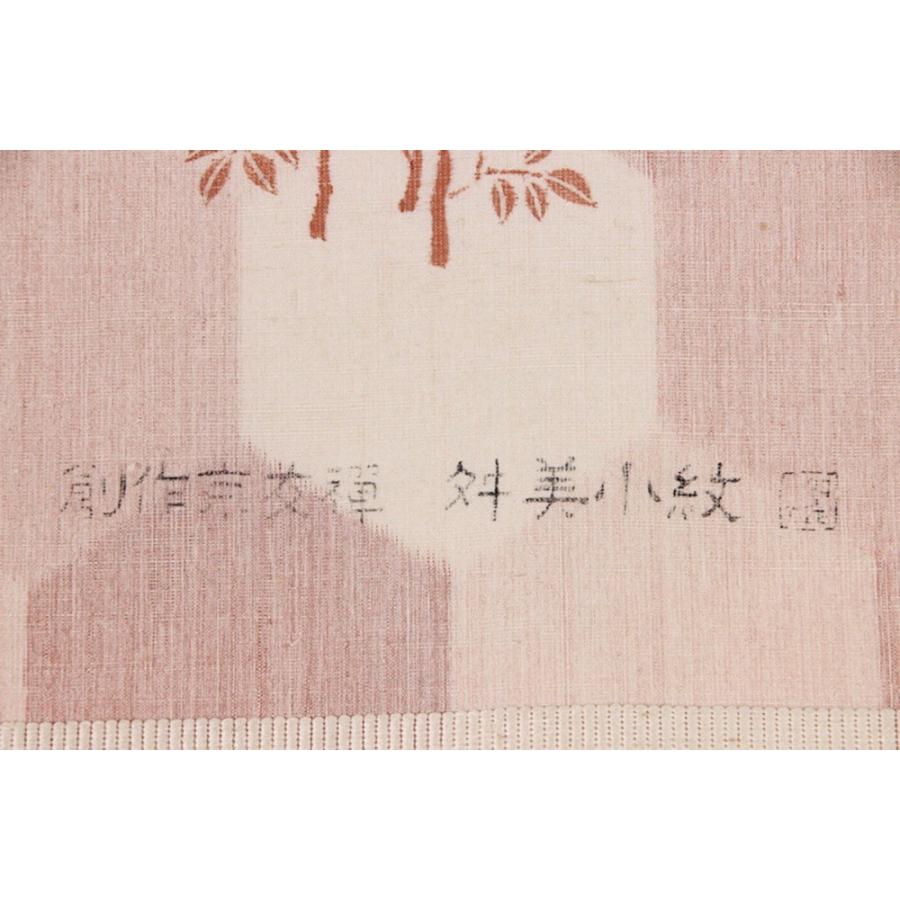 創作京友禅 舛美小紋